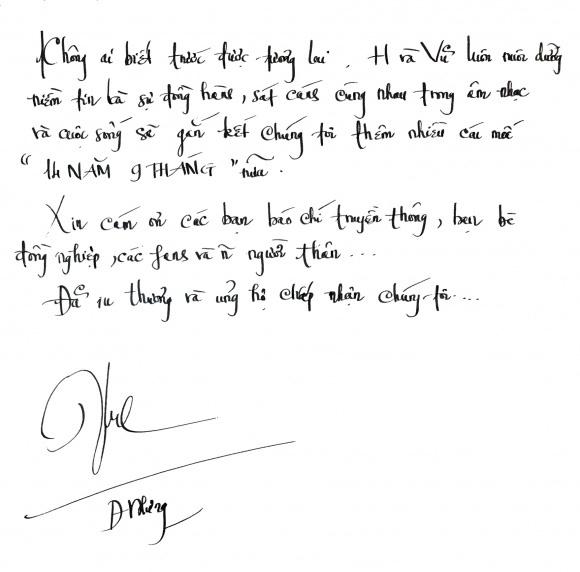 Không ai biết trước được tương lai. H và Vũ luôn nuôi dưỡng
niềm tin và sự đồng hành, sát cánh cùng nhau trong âm nhạc
và cuộc sống sẽ gắn kết chúng tôi thêm nhiều các mốc
“ 14 NĂM 9 THÁNG ” nữa.
Xin cám ơn các bạn báo chí truyền thông, bạn bè
đồng nghiệp, các fans và n người thân...
Đã iu thương và ủng hộ chấp nhận chúng tôi....
D Nhưng